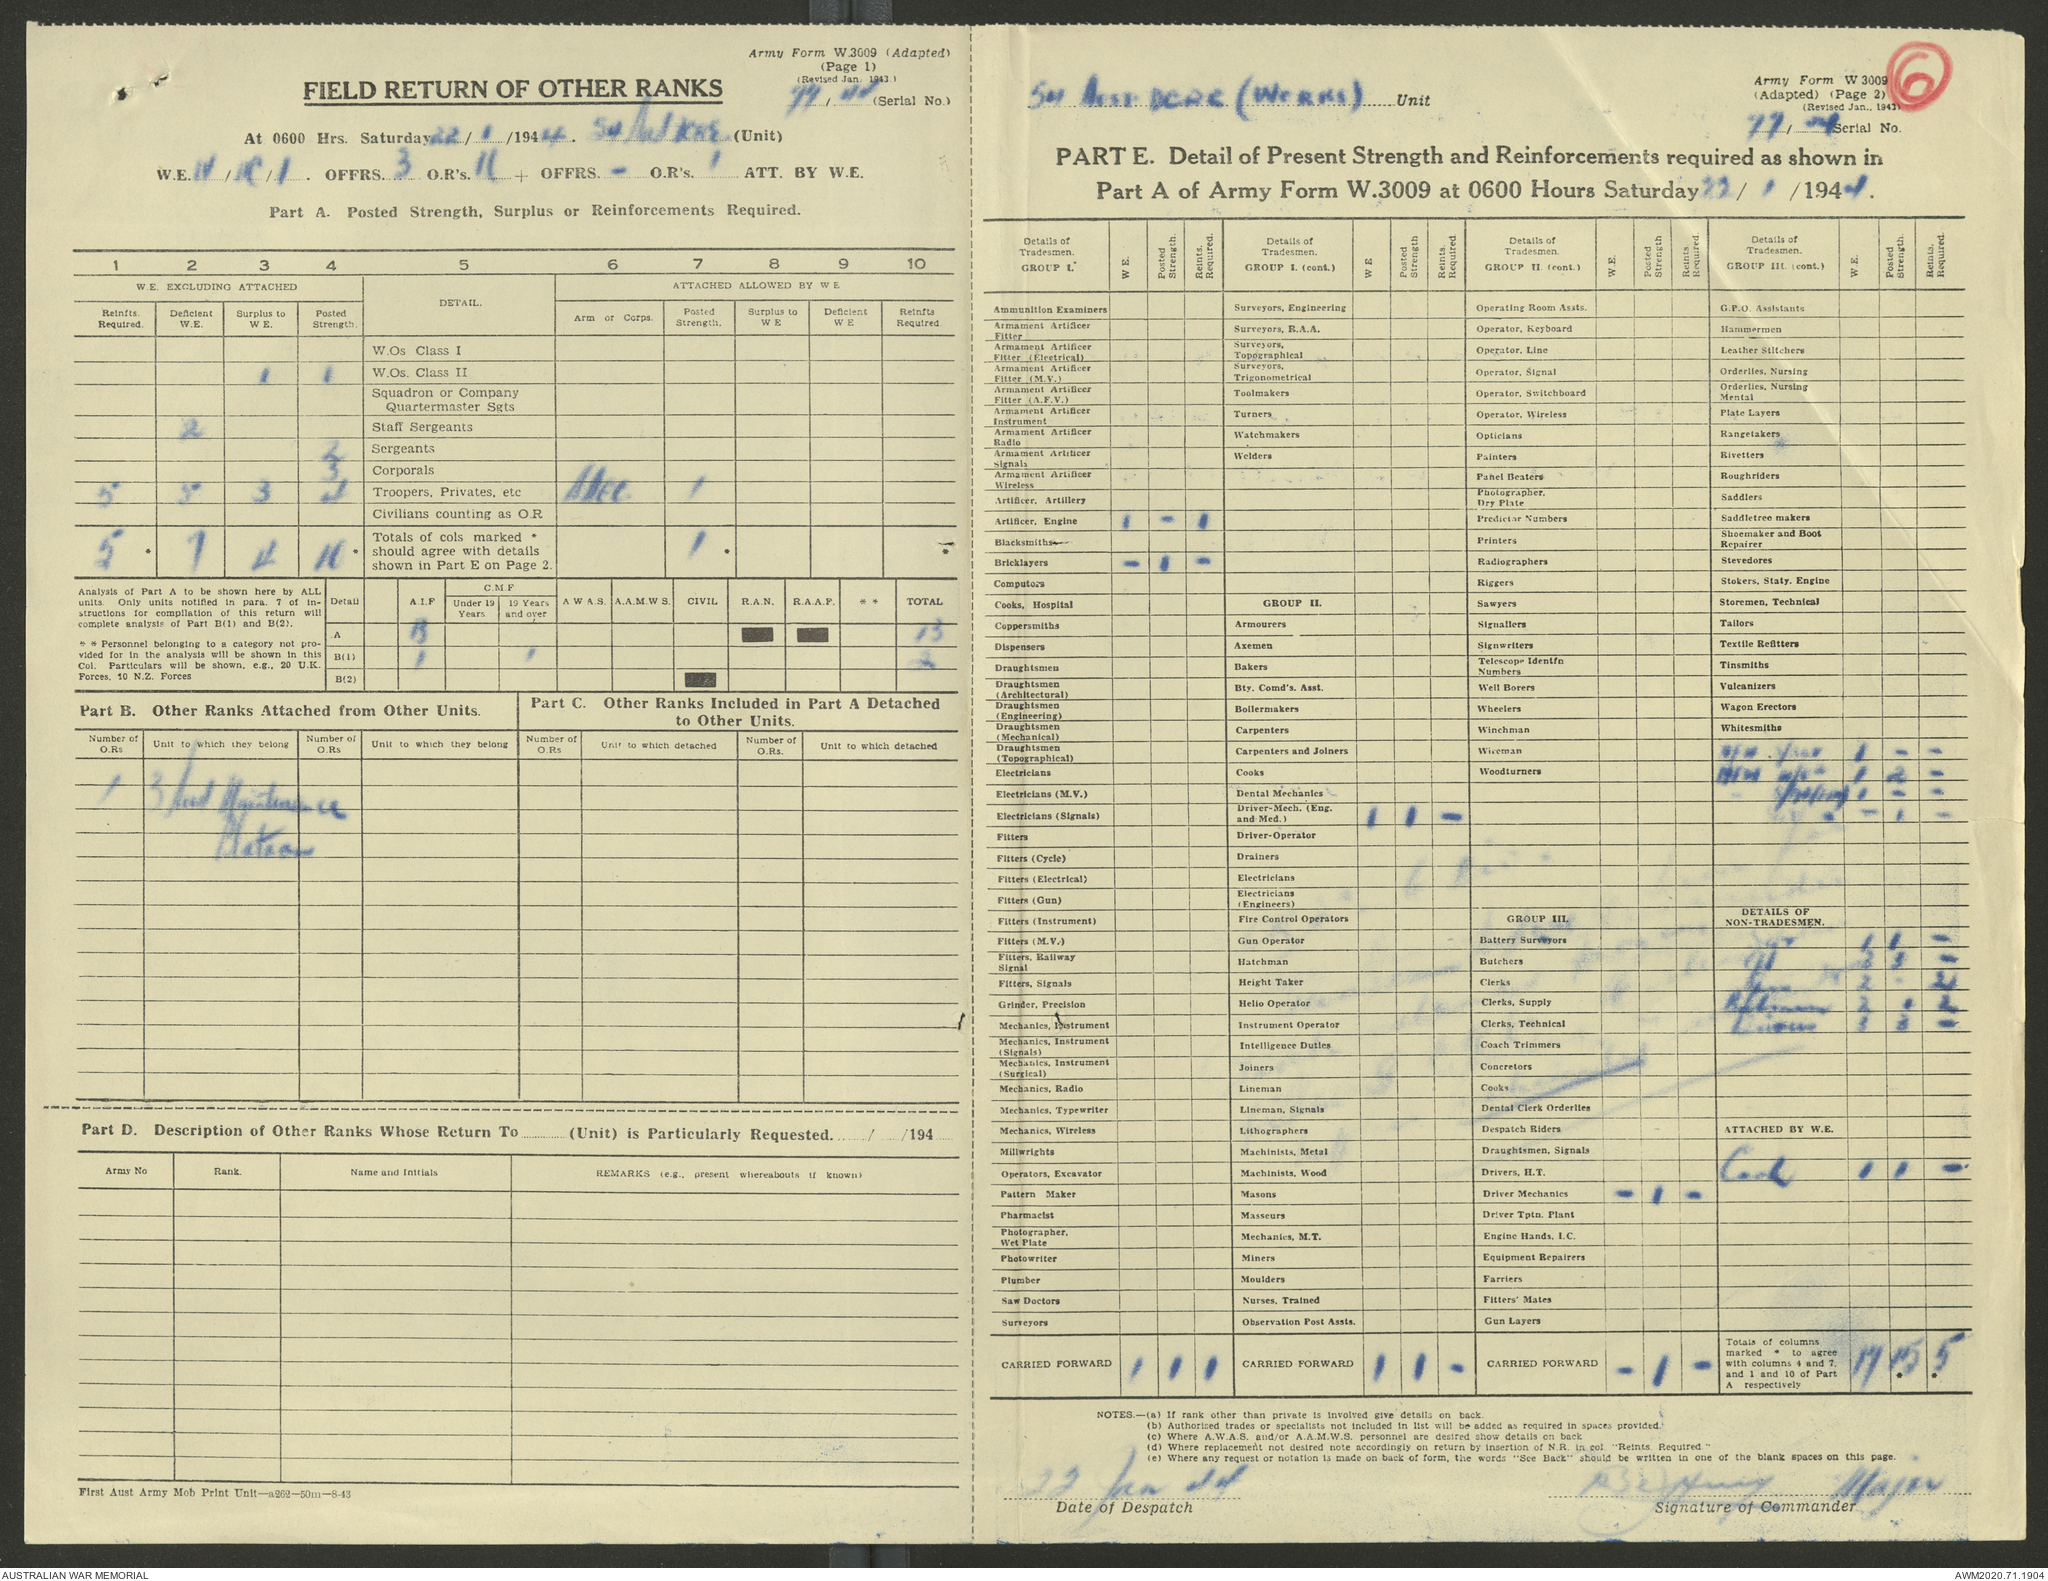 Army Form W.3009 (Adapted)
(Page 1)
(Revised Jan. 1943.)
FIELD RETURN OF OTHER RANKS
77/44 (Serial No.)
At 0600 Hrs. Saturday 22/1/1944. 54 Aust (Unit)
W.E. /1. OFFRS. 3 O.R's. + OFFRS. - O.R's. 1 ATT. BY W.E.
Part A. Posted Strength, Surplus or Reinforcements Required.
1 2 3 4 5 6 7 8 9 10
W.E. EXCLUDING ATTACHED DETAIL. ATTACHED ALLOWED BY W E
Reinfts. Required. Deficient W.E. Surplus to W E. Posted Strength. Arm or Corps. Posted Strength. Surplus to W E Deficient W E Reinfts Required.
W.Os Class I
1 1 W.Os. Class II
Squadron or Company
Quartermaster Sgts
2 Staff Sergeants
2 Sergeants
3 Corporals
5 5 3 Troopers, Privates, etc 1
Civilians counting as O.R
5 * 7 4 * Totals of cols marked * should agree with details shown in Part E on Page 2. 1 * *
Analysis of Part A to be shown here by ALL
units. Only units notified in para. 7 of in-
structions for compilation of this return will
complete analysis of Part B(1) and B(2).
* * Personnel belonging to a category not pro-
vided for in the analysis will be shown in this
Col. Particulars will be shown, e.g., 20 U.K.
Forces, 10 N.Z. Forces
Detail A.I.F C.M.F Under 19 Years 19 Years and over A W A S. A.A.M.W S. CIVIL R.A.N. R.A.A.F. * * TOTAL
A 13 13
B(1) 1 1 2
B(2)
Part B. Other Ranks Attached from Other Units.
Part C. Other Ranks Included in Part A Detached
to Other Units.
Number of O.Rs Unit to which they belong Number of O.Rs Unit to which they belong Number of O.Rs Unit to which detached Number of O.Rs. Unit to which detached
1 3 Aust Maintenance
Platoon
Part D. Description of Other Ranks Whose Return To (Unit) is Particularly Requested. / /194
Army No Rank. Name and Initials REMARKS (e.g., present whereabouts if known)
First Aust Army Mob Print Unit—a262—50m—8-43
54 Aust DCRE (Works) Unit
Army Form W 3009
(Adapted) (Page 2)
(Revised Jan., 1943)
6
77/44 Serial No.
PART E. Detail of Present Strength and Reinforcements required as shown in
Part A of Army Form W.3009 at 0600 Hours Saturday 22/1/1944.
Details of Tradesmen. GROUP I.* W E. Posted Strength. Reints. Required.
Ammunition Examiners
Armament Artificer Fitter
Armament Artificer Fitter (Electrical)
Armament Artificer Fitter (M.V.)
Armament Artificer Fitter (A.F.V.)
Armament Artificer Instrument
Armament Artificer Radio
Armament Artificer Signals
Armament Artificer Wireless
Artificer, Artillery
Artificer, Engine 1 - 1
Blacksmiths
Bricklayers - 1 -
Computors
Cooks, Hospital
Coppersmiths
Dispensers
Draughtsmen
Draughtsmen (Architectural)
Draughtsmen (Engineering)
Draughtsmen (Mechanical)
Draughtsmen (Topographical)
Electricians
Electricians (M.V.)
Electricians (Signals)
Fitters
Fitters (Cycle)
Fitters (Electrical)
Fitters (Gun)
Fitters (Instrument)
Fitters (M.V.)
Fitters, Railway Signal
Fitters, Signals
Grinder, Precision
Mechanics, Instrument
Mechanics, Instrument (Signals)
Mechanics, Instrument (Surgical)
Mechanics, Radio
Mechanics, Typewriter
Mechanics, Wireless
Millwrights
Operators, Excavator
Pattern Maker
Pharmacist
Photographer, Wet Plate
Photowriter
Plumber
Saw Doctors
Surveyors
CARRIED FORWARD 1 1 1
Details of Tradesmen. GROUP I. (cont.) W E Posted Strength Reints. Required.
Surveyors, Engineering
Surveyors, R.A.A.
Surveyors, Topographical
Surveyors, Trigonometrical
Toolmakers
Turners
Watchmakers
Welders
GROUP II.
Armourers
Axemen
Bakers
Bty. Comd's. Asst.
Boilermakers
Carpenters
Carpenters and Joiners
Cooks
Dental Mechanics
Driver-Mech. (Eng. and Med.) 1 1 -
Driver-Operator
Drainers
Electricians
Electricians (Engineers)
Fire Control Operators
Gun Operator
Hatchman
Height Taker
Helio Operator
Instrument Operator
Intelligence Duties
Joiners
Lineman
Lineman, Signals
Lithographers
Machinists, Metal
Machinists, Wood
Masons
Masseurs
Mechanics, M.T.
Miners
Moulders
Nurses, Trained
Observation Post Assts.
CARRIED FORWARD 1 1 -
Details of Tradesmen. GROUP II. (cont.) W.E. Posted Strength Reints. Required.
Operating Room Assts.
Operator, Keyboard
Operator, Line
Operator, Signal
Operator, Switchboard
Operator, Wireless
Opticians
Painters
Panel Beaters
Photographer, Dry Plate
Predictor Numbers
Printers
Radiographers
Riggers
Sawyers
Signallers
Signwriters
Telescope Identfn Numbers
Well Borers
Wheelers
Winchman
Wireman
Woodturners
GROUP III.
Battery Surveyors
Butchers
Clerks
Clerks, Supply
Clerks, Technical
Coach Trimmers
Concretors
Cooks
Dental Clerk Orderlies
Despatch Riders
Draughtsmen, Signals
Drivers, H.T.
Driver Mechanics - 1 -
Driver Tptn. Plant
Engine Hands, I.C.
Equipment Repairers
Farriers
Fitters' Mates
Gun Layers
CARRIED FORWARD - 1 -
Details of Tradesmen. GROUP III. (cont.) W.E. Posted Strength. Reints. Required.
G.P.O. Assistants
Hammermen
Leather Stitchers
Orderlies, Nursing
Orderlies, Nursing Mental
Plate Layers
Rangetakers
Rivetters
Roughriders
Saddlers
Saddletree makers
Shoemaker and Boot Repairer
Stevedores
Stokers, Staty. Engine
Storemen, Technical
Tailors
Textile Refitters
Tinsmiths
Vulcanizers
Wagon Erectors
Whitesmiths
1 - -
1 2 -
1 - -
- 1 -
DETAILS OF
NON-TRADESMEN.
1 1 -
3 3 -
2 - 2
Batmen 2 2
3 3 -
ATTACHED BY W.E.
Cook 1 1 -
Totals of columns marked * to agree with columns 4 and 7, and 1 and 10 of Part A respectively 19 15 * 5 *
NOTES.—(a) If rank other than private is involved give details on back.
(b) Authorised trades or specialists not included in list will be added as required in spaces provided.
(c) Where A.W.A.S. and/or A.A.M.W.S. personnel are desired show details on back
(d) Where replacement not desired note accordingly on return by insertion of N.R. in col. "Reints. Required."
(e) Where any request or notation is made on back of form, the words "See Back" should be written in one of the blank spaces on this page.
22 Jan 44
Date of Despatch
Major
Signature of Commander
AUSTRALIAN WAR MEMORIAL
AWM2020.71.1904